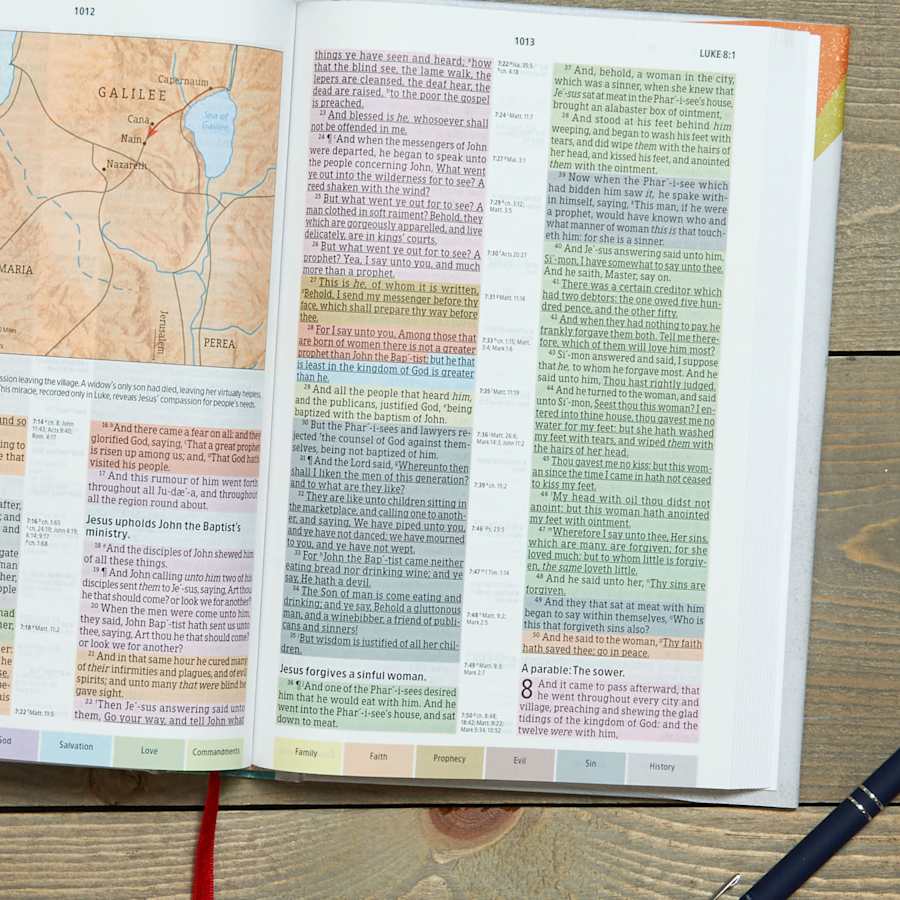 1012
Capernaum
GALILEE
Cana
Sea of
Galilee
Nain
Nazareth
MARIA
Jerusalem
PEREA
ssion leaving the village. A widow's only son had died, leaving her virtually helpless.
This miracle, recorded only in Luke, reveals Jesus' compassion for people's needs.
7:14 ᵖch. 8: John
11:43; Acts 9:40;
Rom. 4:17
7:18 ᵗMatt. 11:2
7:22 ᵘMatt. 11:5
16 And there came a fear on all: and they
glorified God, saying, That a great prophet
is risen up among us; and, That God hath
visited his people.
17 And this rumour of him went forth
throughout all Ju-dæ´-a, and throughout
all the region round about.
Jesus upholds John the Baptist's
ministry.
18 And the disciples of John shewed him
of all these things.
19 ¶ And John calling unto him two of his
disciples sent them to Je´-sus, saying, Art thou
he that should come? or look we for another?
20 When the men were come unto him,
they said, John Bap´-tist hath sent us unto
thee, saying, Art thou he that should come?
or look we for another?
21 And in that same hour he cured many
of their infirmities and plagues, and of evil
spirits; and unto many that were blind he
gave sight.
22 Then Je´-sus answering said unto
them, Go your way, and tell John what
God
Salvation
Love
Commandments
1013
LUKE·8:1
things ye have seen and heard; how
that the blind see, the lame walk, the
lepers are cleansed, the deaf hear, the
dead are raised, to the poor the gospel
is preached.
23 And blessed is he, whosoever shall
not be offended in me.
24 ¶ And when the messengers of John
were departed, he began to speak unto
the people concerning John, What went
ye out into the wilderness for to see? A
reed shaken with the wind?
25 But what went ye out for to see? A
man clothed in soft raiment? Behold, they
which are gorgeously apparelled, and live
delicately, are in kings' courts.
26 But what went ye out for to see? A
prophet? Yea, I say unto you, and much
more than a prophet.
27 This is he, of whom it is written,
Behold, I send my messenger before thy
face, which shall prepare thy way before
thee.
28 For I say unto you, Among those that
are born of women there is not a greater
prophet than John the Bap´-tist: but he that
is least in the kingdom of God is greater
than he.
29 And all the people that heard him,
and the publicans, justified God, being
baptized with the baptism of John.
30 But the Phar´-i-sees and lawyers re-
jected the counsel of God against them-
selves, being not baptized of him.
31 ¶ And the Lord said, Whereunto then
shall I liken the men of this generation?
and to what are they like?
32 They are like unto children sitting in
the marketplace, and calling one to anoth-
er, and saying, We have piped unto you,
and ye have not danced; we have mourned
to you, and ye have not wept.
33 For John the Bap´-tist came neither
eating bread nor drinking wine; and ye
say, He hath a devil.
34 The Son of man is come eating and
drinking; and ye say, Behold a gluttonous
man, and a winebibber, a friend of publi-
cans and sinners!
35 But wisdom is justified of all her chil-
dren.
Jesus forgives a sinful woman.
36 ¶ And one of the Phar´-i-sees desired
him that he would eat with him. And he
went into the Phar´-i-see's house, and sat
down to meat.
7:24 Matt. 11:7
7:27 Mal. 3:1
7:30 Acts 20:27
7:31 Matt. 11:16
7:35 Matt. 11:19
37 And, behold, a woman in the city,
which was a sinner, when she knew that
Je´-sus sat at meat in the Phar´-i-see's house,
brought an alabaster box of ointment,
38 And stood at his feet behind him
weeping, and began to wash his feet with
tears, and did wipe them with the hairs of
her head, and kissed his feet, and anointed
them with the ointment.
39 Now when the Phar´-i-see which
had bidden him saw it, he spake with-
in himself, saying, This man, if he were
a prophet, would have known who and
what manner of woman this is that touch-
eth him: for she is a sinner.
40 And Je´-sus answering said unto him,
Si´-mon, I have somewhat to say unto thee.
And he saith, Master, say on.
41 There was a certain creditor which
had two debtors: the one owed five hun-
dred pence, and the other fifty.
42 And when they had nothing to pay, he
frankly forgave them both. Tell me there-
fore, which of them will love him most?
43 Si´-mon answered and said, I suppose
that he, to whom he forgave most. And he
said unto him, Thou hast rightly judged.
44 And he turned to the woman, and said
unto Si´-mon, Seest thou this woman? I en-
tered into thine house, thou gavest me no
water for my feet: but she hath washed
my feet with tears, and wiped them with
the hairs of her head.
45 Thou gavest me no kiss: but this wom-
an since the time I came in hath not ceased
to kiss my feet.
46 My head with oil thou didst not
anoint: but this woman hath anointed
my feet with ointment.
47 Wherefore I say unto thee, Her sins,
which are many, are forgiven; for she
loved much: but to whom little is forgiv-
en, the same loveth little.
48 And he said unto her, Thy sins are
forgiven.
49 And they that sat at meat with him
began to say within themselves, Who is
this that forgiveth sins also?
50 And he said to the woman, Thy faith
hath saved thee; go in peace.
A parable: The sower.
8 And it came to pass afterward, that
he went throughout every city and
village, preaching and shewing the glad
tidings of the kingdom of God: and the
twelve were with him,
Family
Faith
Prophecy
Evil
Sin
History